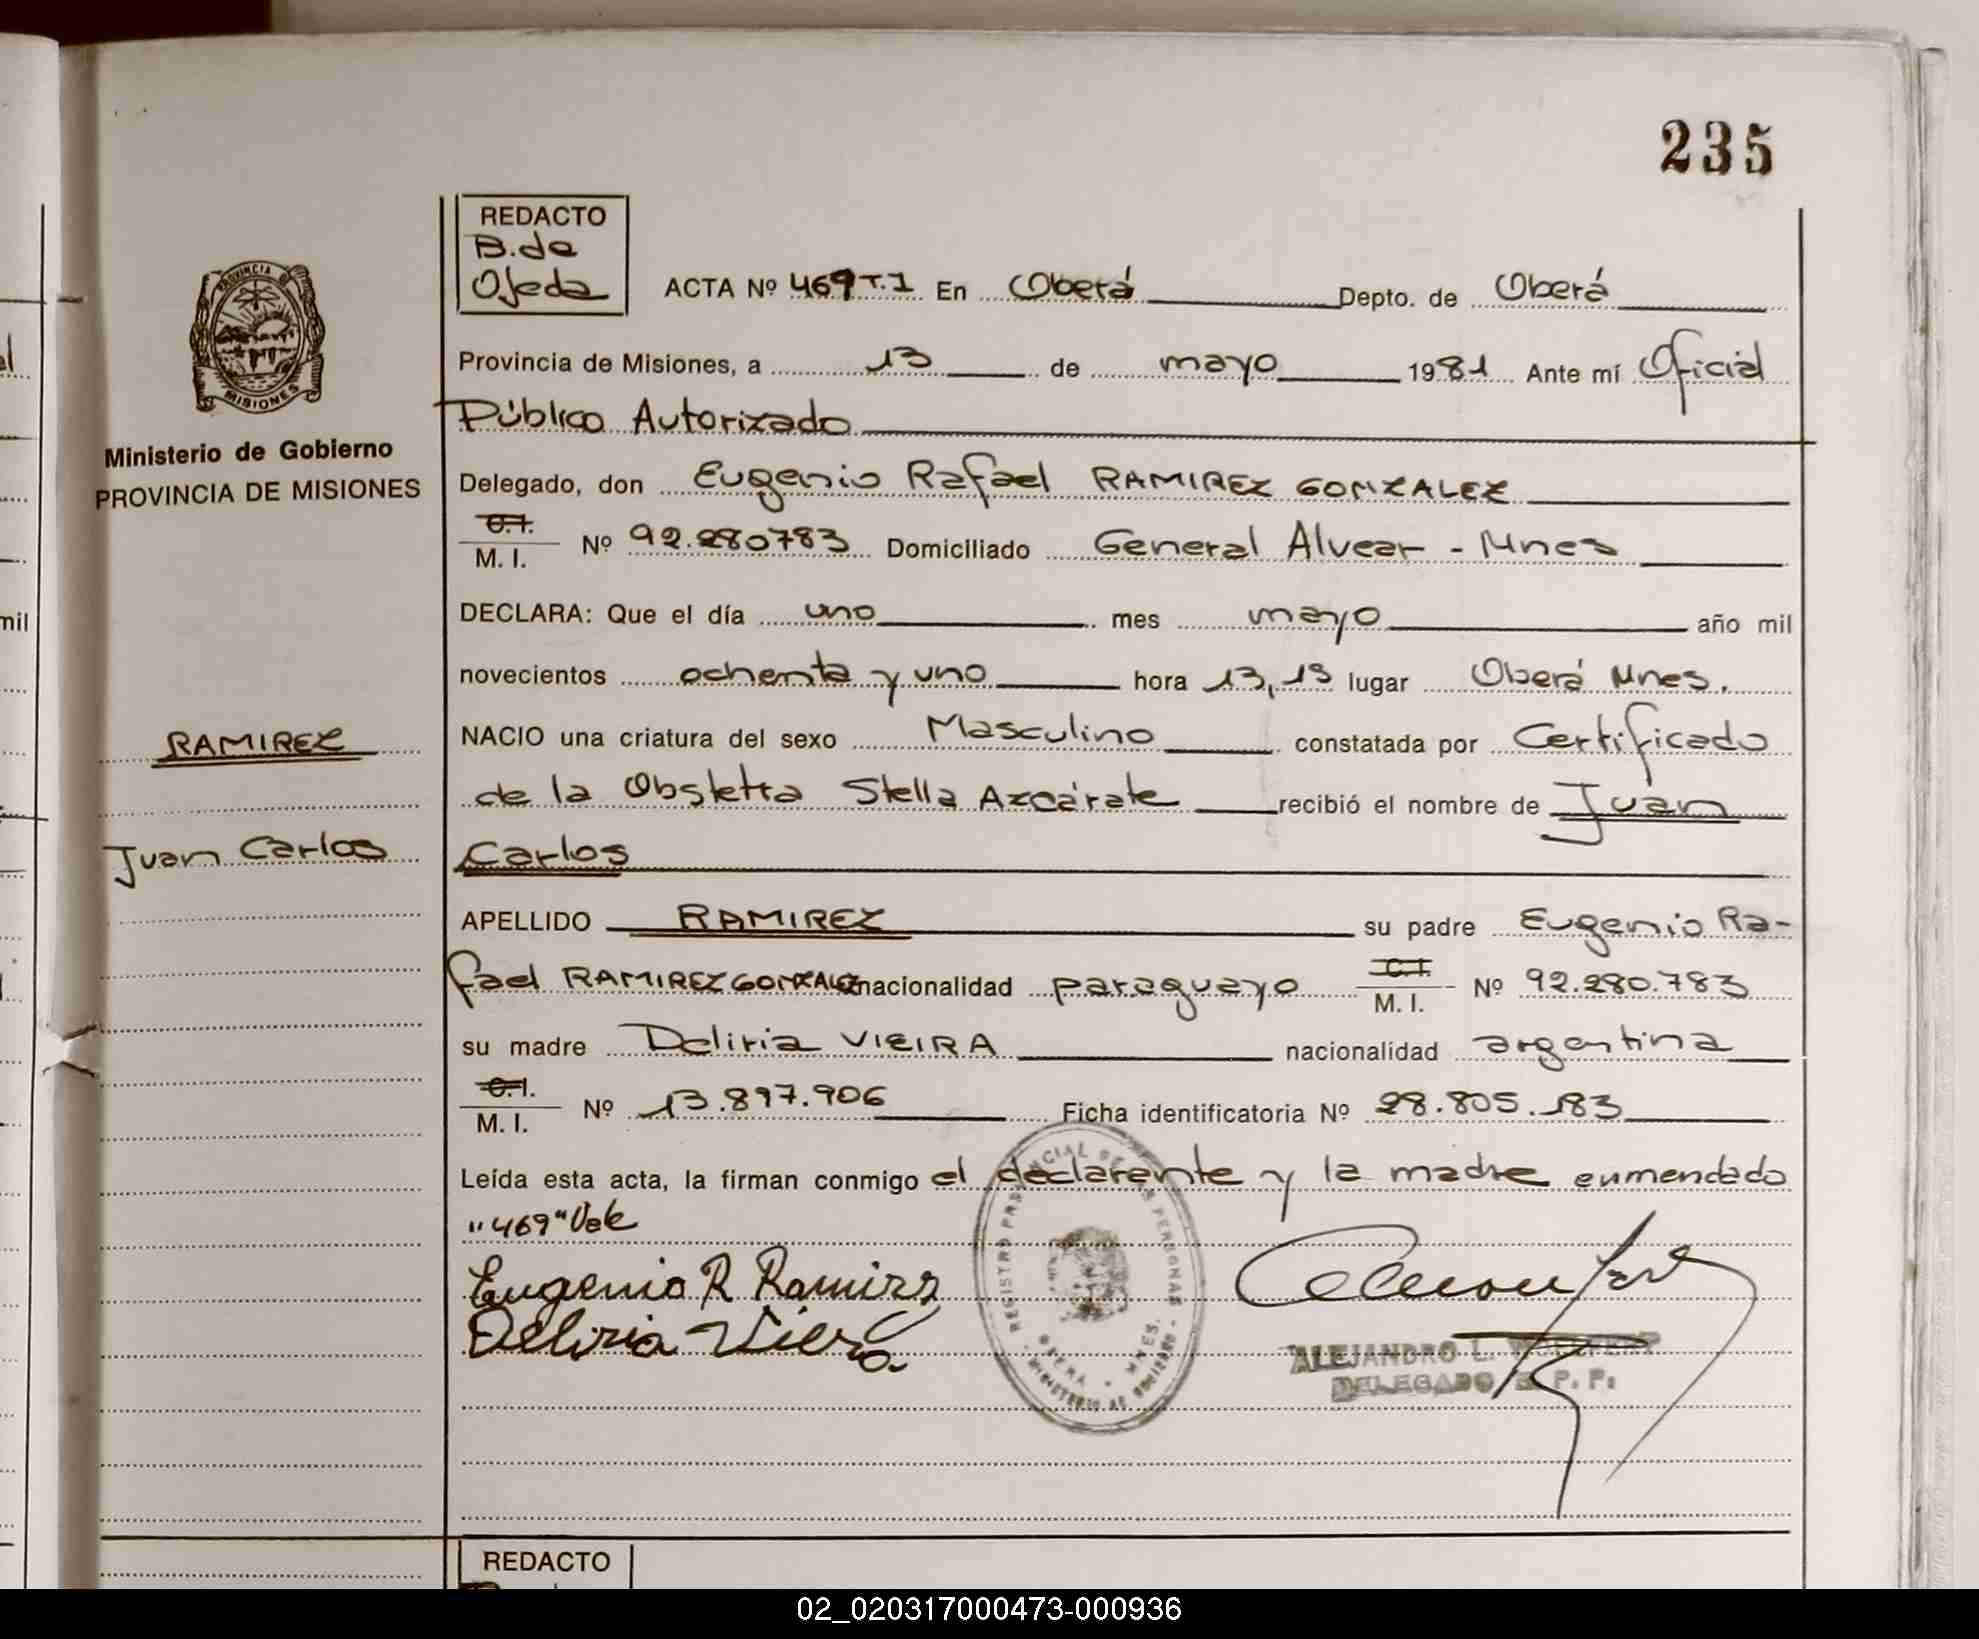 235
REDACTO
B. de
Ojeda
ACTA Nº 469 T.1 En Oberá Depto. de Oberá
Provincia de Misiones, a 13 de mayo 1981 Ante mí Oficial
Público Autorizado
Delegado, don Eugenio Rafael RAMIREZ GONZALEZ
C.I.
M. I. Nº 92.280783 Domiciliado General Alvear - Mnes
DECLARA: Que el día uno mes mayo año mil
novecientos ochenta y uno hora 13,15 lugar Oberá Mnes.
NACIO una criatura del sexo Masculino constatada por Certificado
de la Obstetra Stella Azcárate recibió el nombre de Juan
Carlos
APELLIDO RAMIREZ su padre Eugenio Ra-
fael RAMIREZ GONZALEZ nacionalidad paraguayo C.I. M. I. Nº 92.280.783
su madre Deliria VIEIRA nacionalidad argentina
C.I.
M. I. Nº 13.897.906 Ficha identificatoria Nº 28.805.183
Leída esta acta, la firman conmigo el declarente y la madre enmendado
"469" Vale
Eugenio R Ramirz
Deliria Viera
REGISTRO PROVINCIAL DE LAS PERSONAS
OBERA - MNES.
MINISTERIO DE GOBIERNO
ALEJANDRO L.
DELEGADO R. P. P.
PROVINCIA DE
MISIONES
Ministerio de Gobierno
PROVINCIA DE MISIONES
RAMIREZ
Juan Carlos
mil
REDACTO
02_020317000473-000936